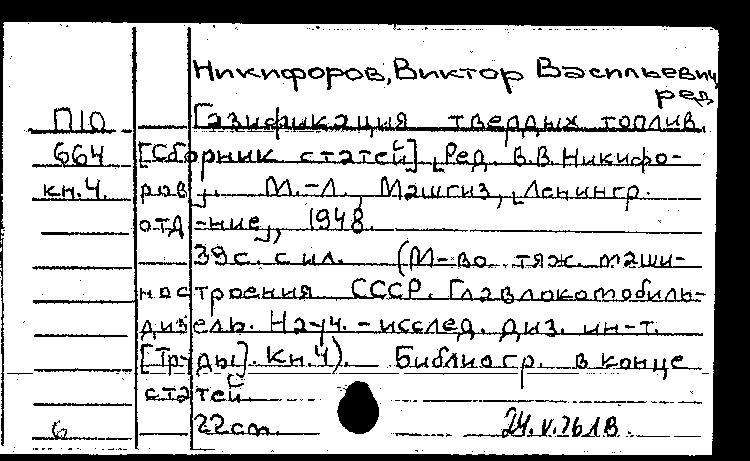 Никифоров, Виктор Васильевич,
ред.
П10 Газификация твердых топлив.
664 [Сборник статей] [Ред. В.В. Никифо-
кн.4. ров]. М.-Л., Машгиз, [Ленингр.
отд-ние], 1948.
39 с. с ил. (М-во тяж. маши-
ностроения СССР. Главлокомобиль-
дизель. Науч.-исслед. диз. ин-т.
[Труды]. Кн.4). Библиогр. в конце
статей.
6 22 cm. 24.V.76